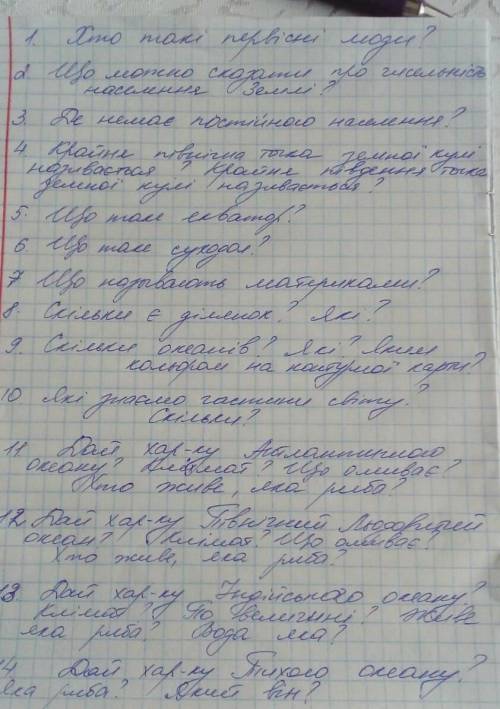 1. Хто такі первісні люди?
2. Що можно сказати про чисельність
населення Землі?
3. Де немає постійного населення?
4. Крайне північна точка земної кулі
називається? Крайне південна точка
земної кулі називається?
5. Що таке екватор?
6 Що таке суходол?
7 Що називають материками?
8. Скільки є ділянок? Які?
9. Скільки океанів? Які? Яким
кольором на контурної карти?
10 Які знаємо частини світу?
Скільки?
11. Дай хар-ку Атлантичного
океану? Клімат? Що омиває?
Хто живе, яка риба?
12. Дай хар-ку Північний Льодовитий
океан? Клімат? Що омиває?
Хто живе, яка риба?
13. Дай хар-ку Індійського океану?
Клімат? По величині? Живе
яка риба? Вода яка?
14 Дай хар-ку Тихого океану?
Яка риба? Який він?